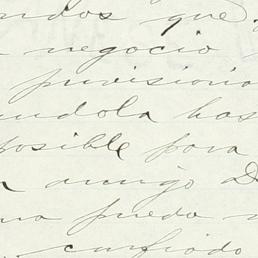 ndos que
negocio
provisiona
andola has
posible para
amigo D
na pueda
confiado